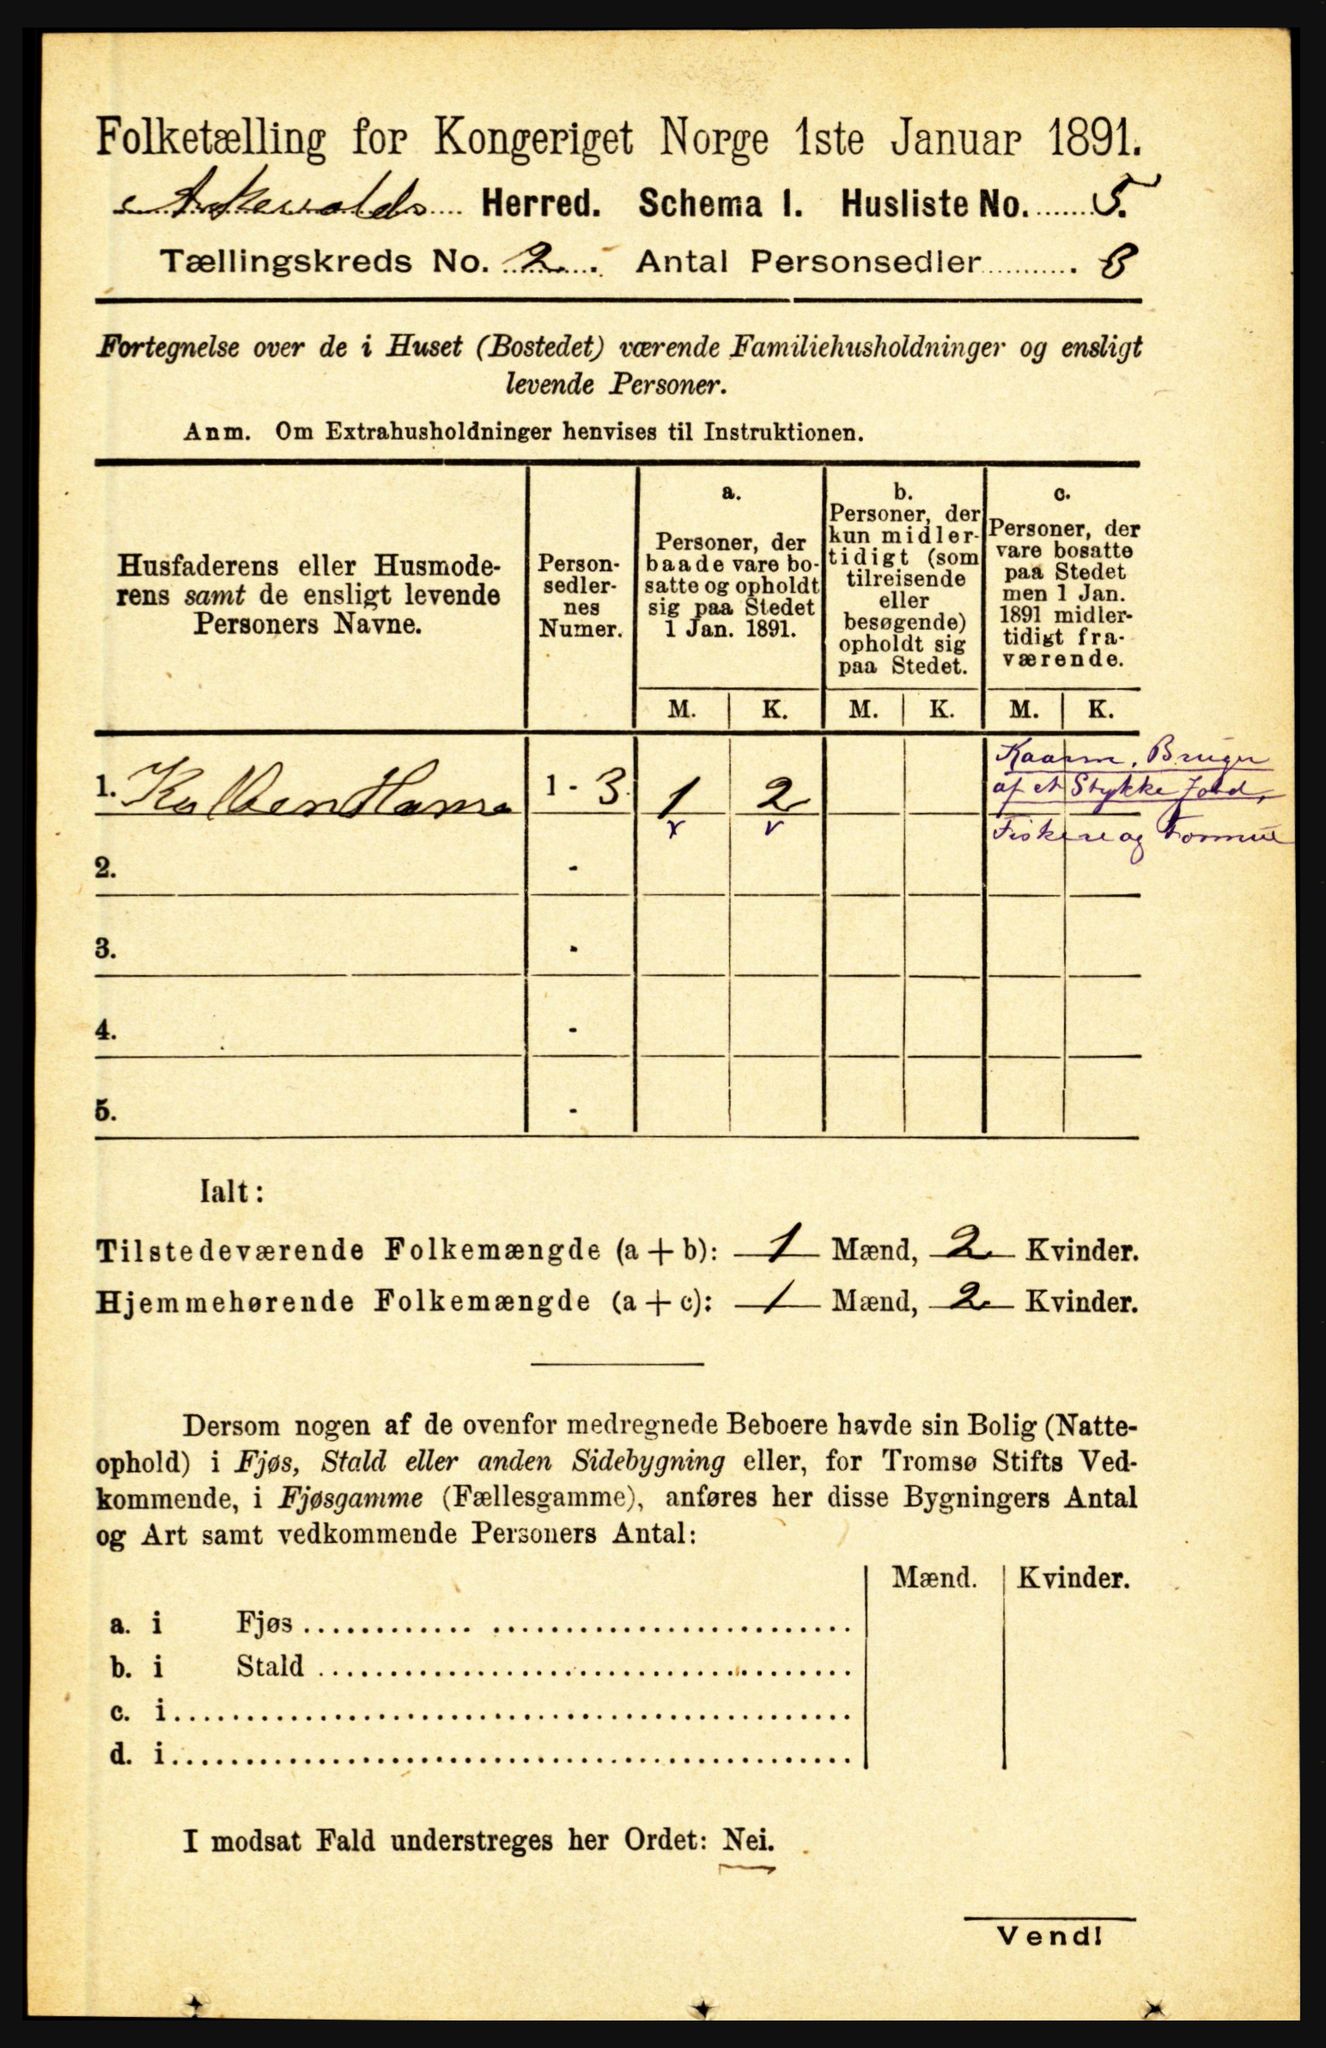 Folketælling for Kongeriget Norge 1ste Januar 1891.
Askevolds Herred. Schema I. Husliste No. 5.
Tællingskreds No. 2. Antal Personsedler 3
Fortegnelse over de i Huset (Bostedet) værende Familiehusholdninger og ensligt
levende Personer.
Anm. Om Extrahusholdninger henvises til Instruktionen.
Husfaderens eller Husmode-
rens samt de ensligt levende
Personers Navne.
Person-
sedler-
nes
Numer.
a.
Personer, der
baade vare bo-
satte og opholdt
sig paa Stedet
1 Jan. 1891.
b.
Personer, der
kun midler-
tidigt (som
tilreisende
eller
besøgende)
opholdt sig
paa Stedet.
c.
Personer, der
vare bosatte
paa Stedet
men 1 Jan.
1891 midler-
tidigt fra-
værende.
M. K. M. K. M. K.
1. Hansen 1 - 3. 1 2
Kaarm. Bruger
af et Stykke Jord,
Fisker og
2. -
3. -
4. -
5. -
Ialt:
Tilstedeværende Folkemængde (a + b): 1 Mænd, 2 Kvinder.
Hjemmehørende Folkemængde (a + c): 1 Mænd, 2 Kvinder.
Dersom nogen af de ovenfor medregnede Beboere havde sin Bolig (Natte-
ophold) i Fjøs, Stald eller anden Sidebygning eller, for Tromsø Stifts Ved-
kommende, i Fjøsgamme (Fællesgamme), anføres her disse Bygningers Antal
og Art samt vedkommende Personers Antal:
Mænd. Kvinder.
a. i Fjøs
b. i Stald
c. i
d. i
I modsat Fald understreges her Ordet: Nei.
Vend!